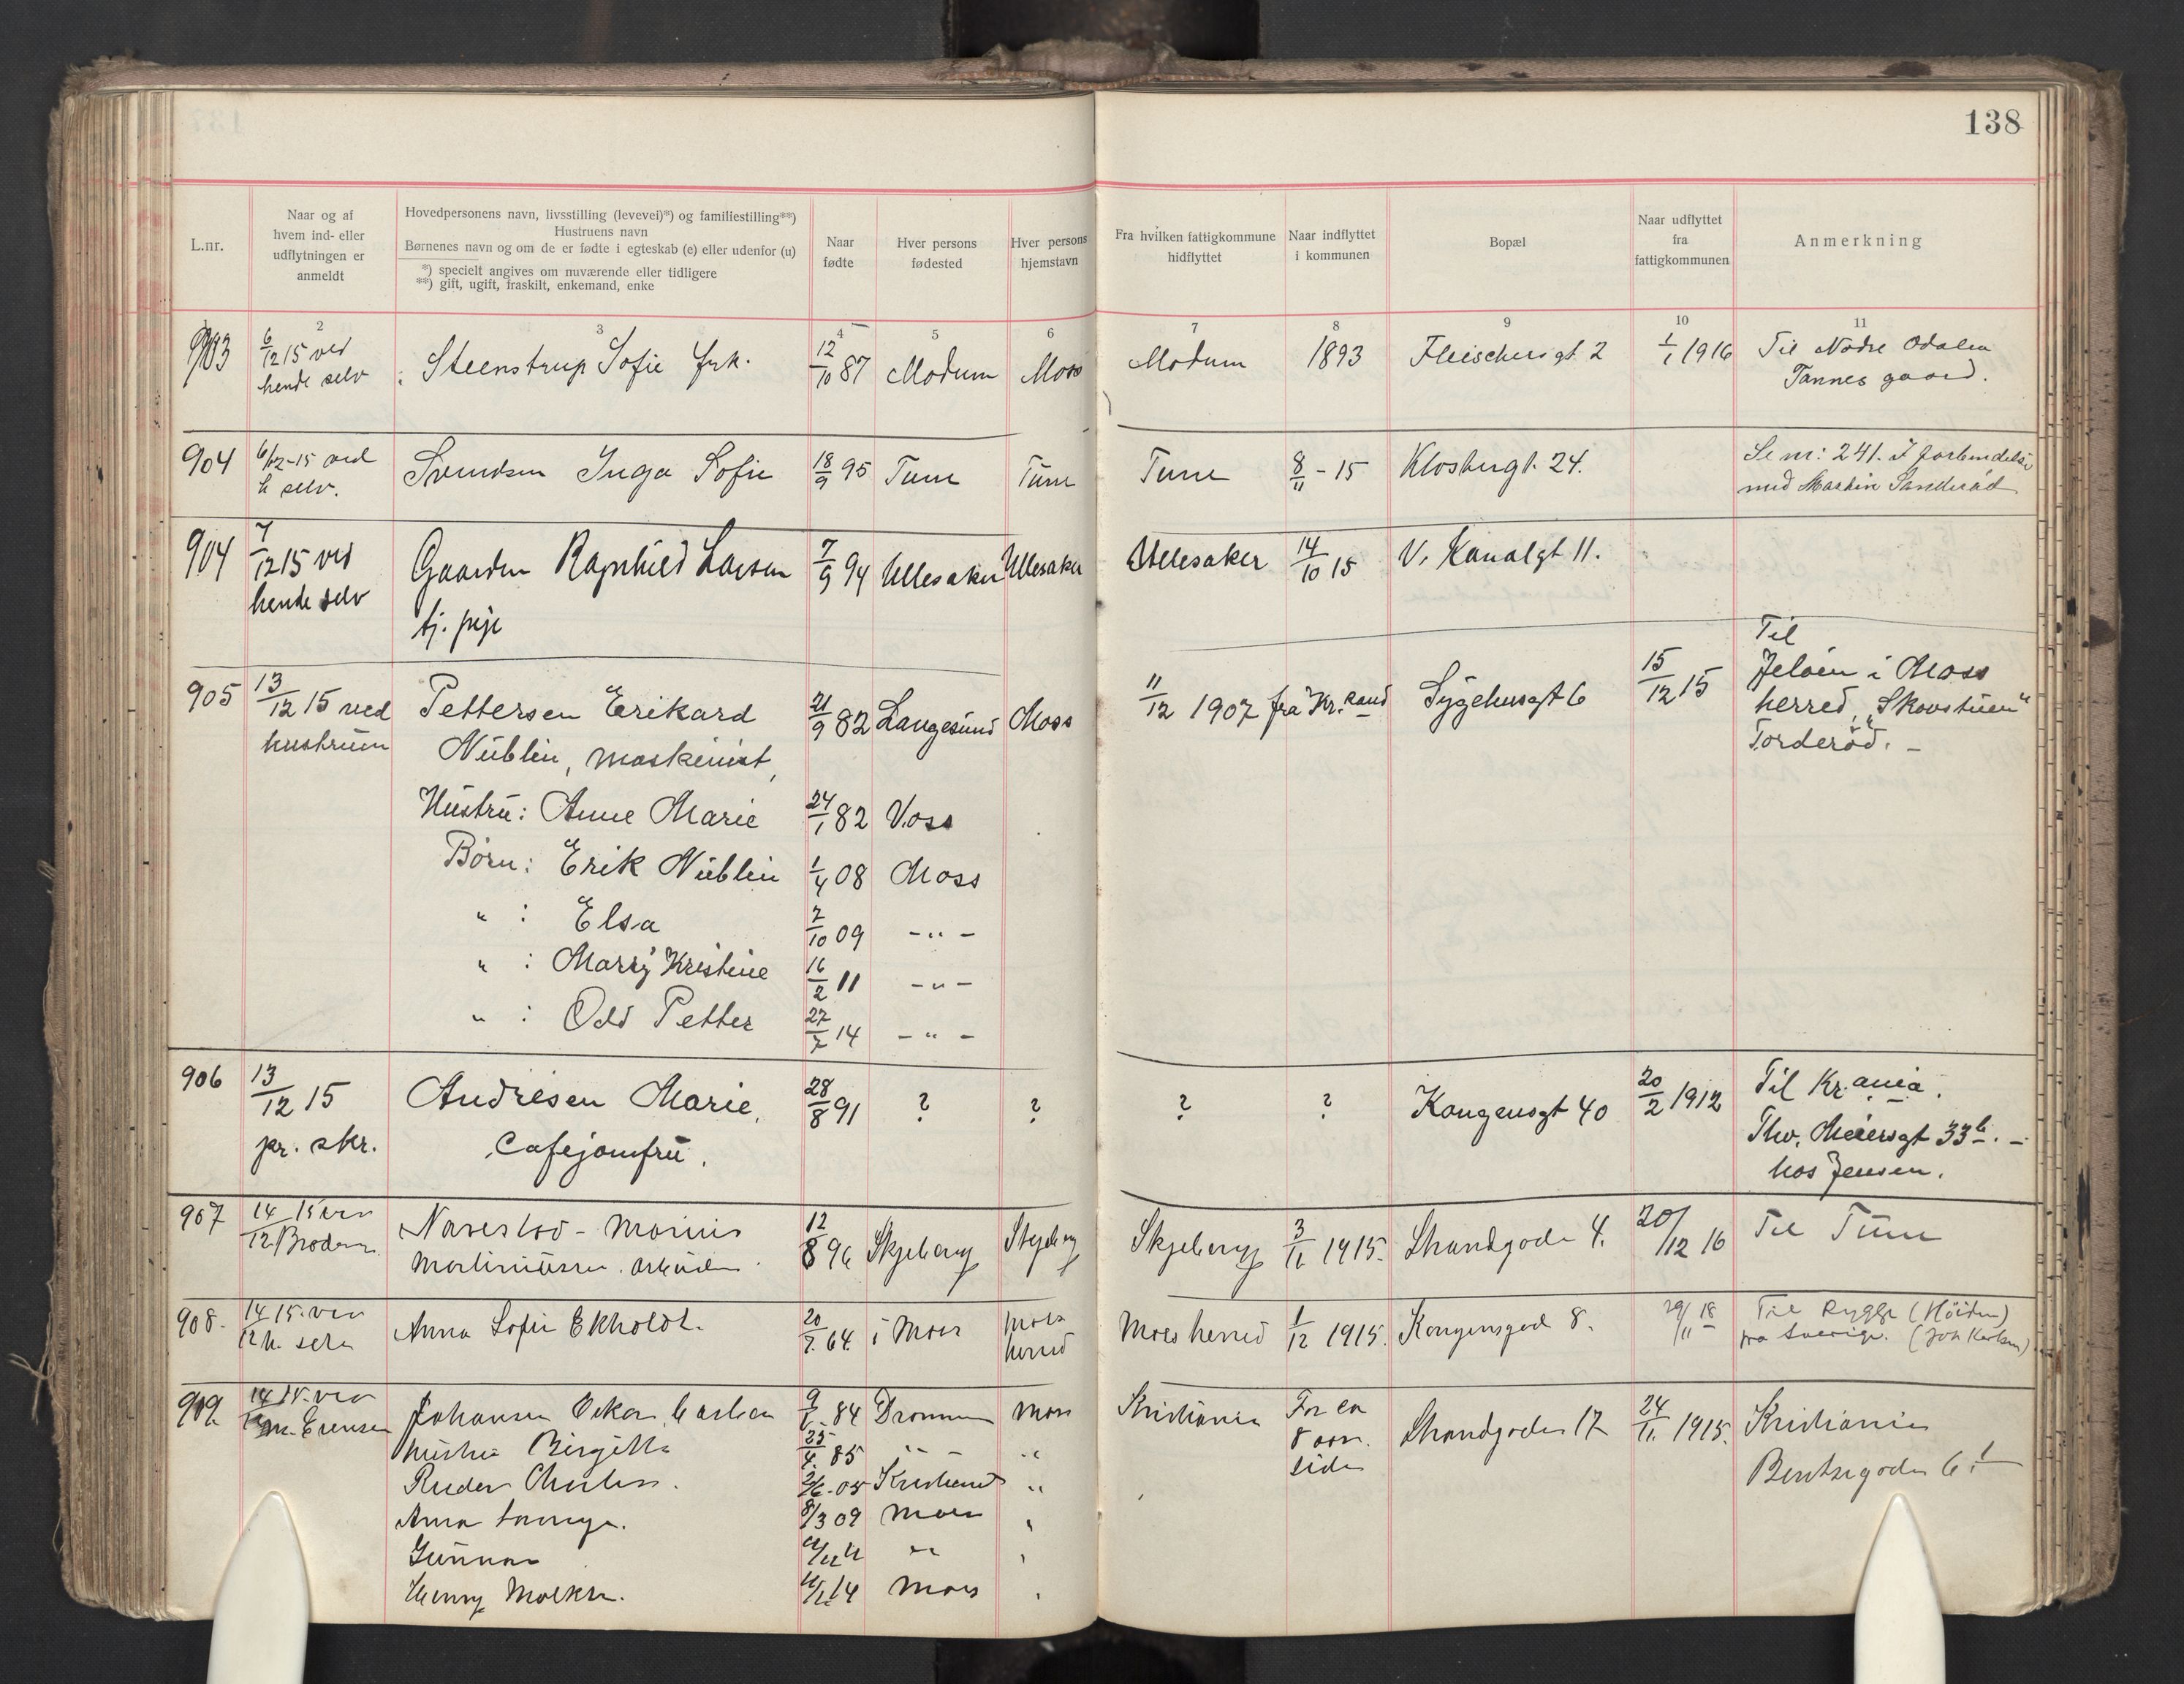 138
L.nr.
Naar og af
hvem ind- eller
udflytningen er
anmeldt
Hovedpersonens navn, livsstilling (levevei)*) og familiestilling**)
Hustruens navn
Børnenes navn og om de er fødte i egteskab (e) eller udenfor (u)
*) specielt angives om nuværende eller tidligere
**) gift, ugift, fraskilt, enkemand, enke
Naar
fødte
Hver persons
fødested
Hver persons
hjemstavn
Fra hvilken fattigkommune
hidflyttet
Naar indflyttet
i kommunen
Bopæl
Naar udflyttet
fra
fattigkommunen
Anmerkning
2 3 4 5 6 7 8 9 10 11
903 6/12 15 ved Steenstrup Sofie frk. 12/10 87 Modum Moss Modum 1893 Fleischersgt 2 1/1 1916 Til Nodre Odalen
hende selv Tannes gaard.
904 6/12-15 ved Svendsen Inga Sofie 18/9 95 Tune Tune Tune 8/11 - 15 Klosbergt. 24. Se nr: 241. I forbindelse
h selv. med Martin Sandkröd
904 7/12 15 ved Gaarden Ragnhild Larsen 7/9 94 Ullesaker Ullesaker Ullesaker 14/10 15 V. Kanalgt 11.
hende selv tj. pige
905 13/12 15 ved Pettersen Erikard 21/9 82 Langesund Moss 11/12 1907 fra Kr.sand Sygehusgt 6 15/12 15 Til
Jeløen i Moss
herred, "Skovstuen"
Torderød. -
hustruen Nüblin, maskinist,
Hustru: Anne Marie 24/1 82 Voss
Børn: Erik Nüblin 1/4 08 Moss
" : Elsa 7/10 09 - " -
" : Marry Kristine 16/2 11 - " -
" : Odd Petter 27/7 14 - " -
906 13/12 15 Andresen Marie, 28/8 91 ? ? ? ? Kongensgt 40 20/2 1912 Til Kr.ania.
pr. skr. Cafejomfru. Thv. Meiersgt 33b. -
hos Jensen.
907 14/12 15 ved Navestad - Marius 12/8 96 Skjeberg Skjeberg Skjeberg 3/11 1915. Strandgaden 4. 20/12 16 Til Tune
Broderen Martiniussen. arbeider
908. 14/12 15. ved Anna Sofie Ekholdt. 20/7. 64. i Moss Moss Moss herred 1/12 1915. Kongensgad 8. 29/11 18 Til Rygge (Höiden)
h. selv herred fra Sverige. (Joh Karlsen)
909. 14 15. ved Johansen Oskar Carlsen 9/6. 84 Drammen Moss Kristiania For ca Strandgaden 17 24/11. 1915. Kristiania
hustru Birgitte 25/4. 85 " - " 8 aar. Bentsegaden 6
siden
05 Kristiania "
Anna 8/3 09 Moss
Gunnar "
Henry 14 Moss